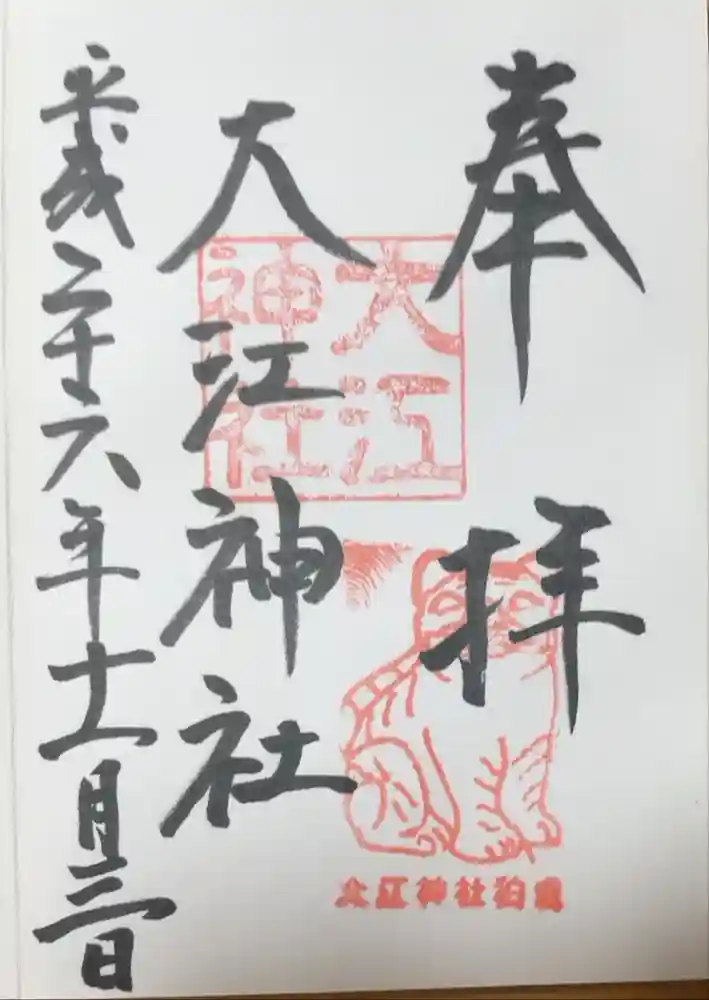 奉拝
大江神社
平成二十六年十一月三日
大江神社
大江神社狛虎